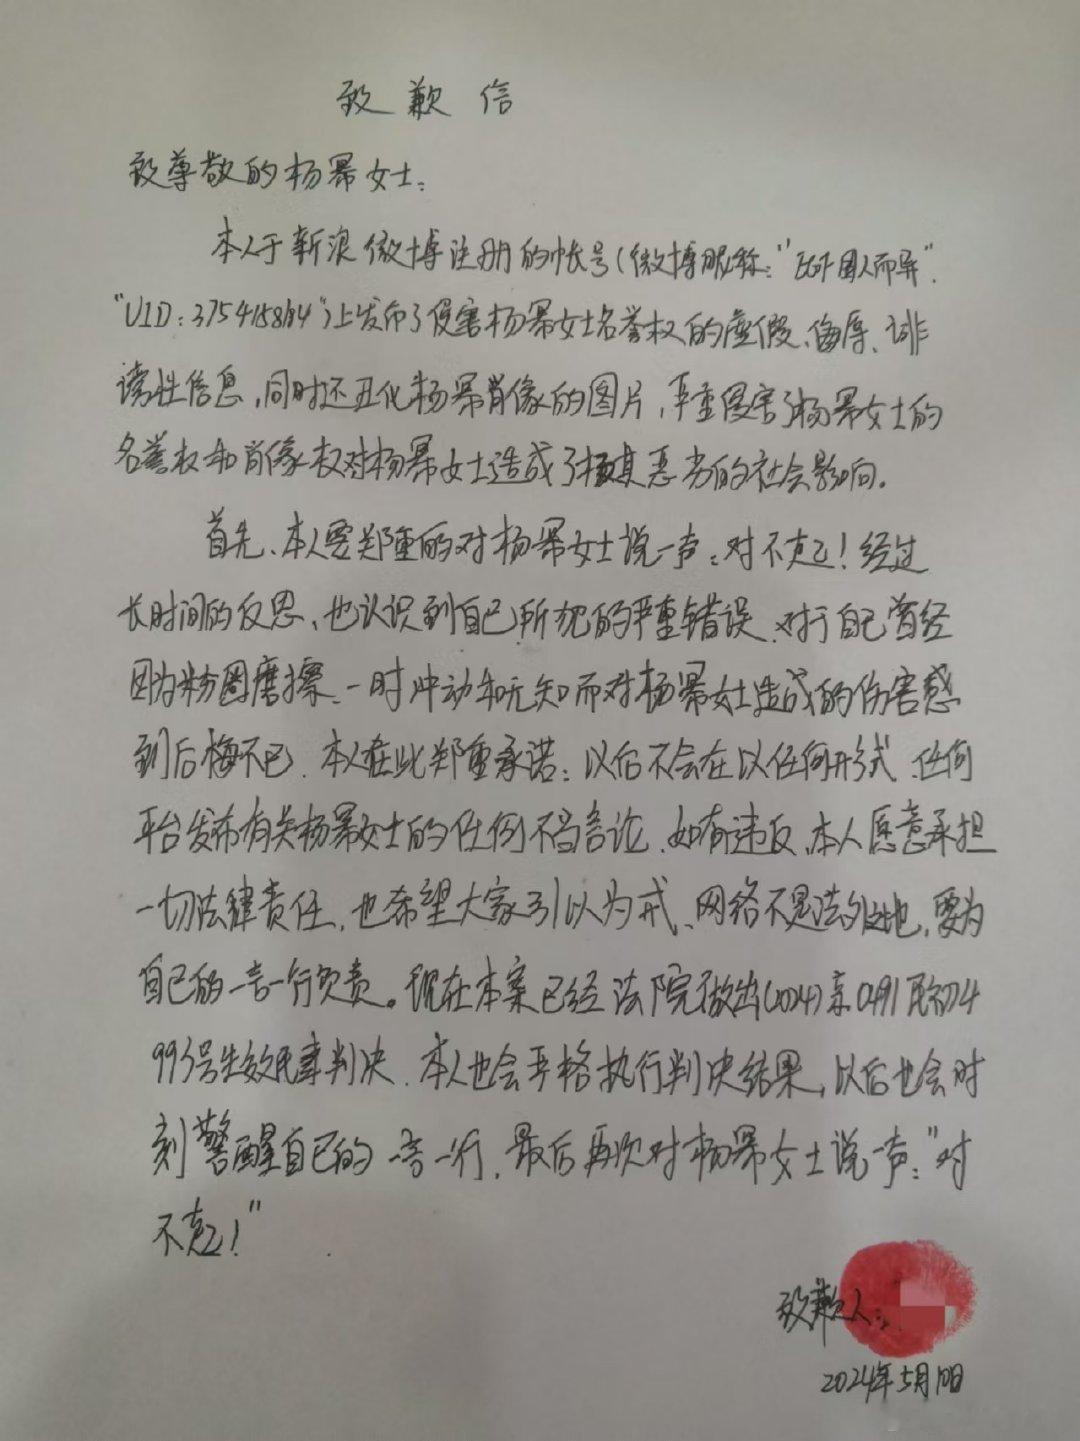 致歉信
致尊敬的杨幂女士：
本人于新浪微博注册的帐号（微博昵称："因人而异"
"UID：3754158614"）上发布了侵害杨幂女士名誉权的虚假、侮辱、诽
谤性信息，同时还丑化杨幂肖像的图片，严重侵害了杨幂女士的
名誉权和肖像权对杨幂女士造成了极其恶劣的社会影响。
首先、本人要郑重的对杨幂女士说一声：对不起！经过
长时间的反思、也认识到自己所犯的严重错误、对于自己曾经
因为粉圈磨擦、一时冲动和无知而对杨幂女士造成的伤害感
到后悔不已、本人在此郑重承诺：以后不会在以任何形式、任何
平台发布有关杨幂女士的任何不当言论、如有违反、本人愿意承担
一切法律责任、也希望大家引以为戒、网络不是法外之地，要为
自己的一言一行负责。现在本案已经法院做出(2024)京0491民初4
993号生效民事判决、本人也会严格执行判决结果，以后也会时
刻警醒自己的一言一行、最后再次对杨幂女士说一声："对
不起！"
致歉人：
2024年5月10日